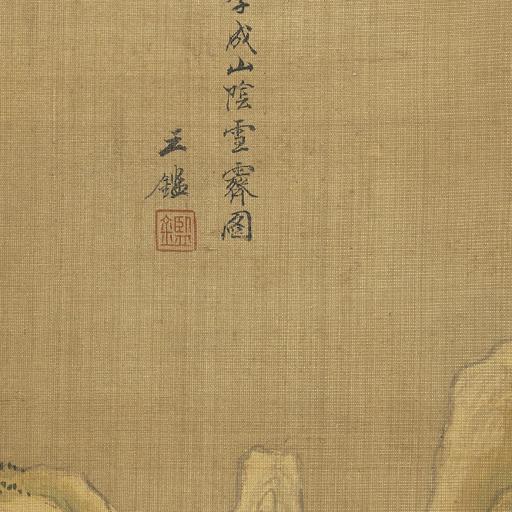 李成山陰雪霽圖
王鑑
鑑